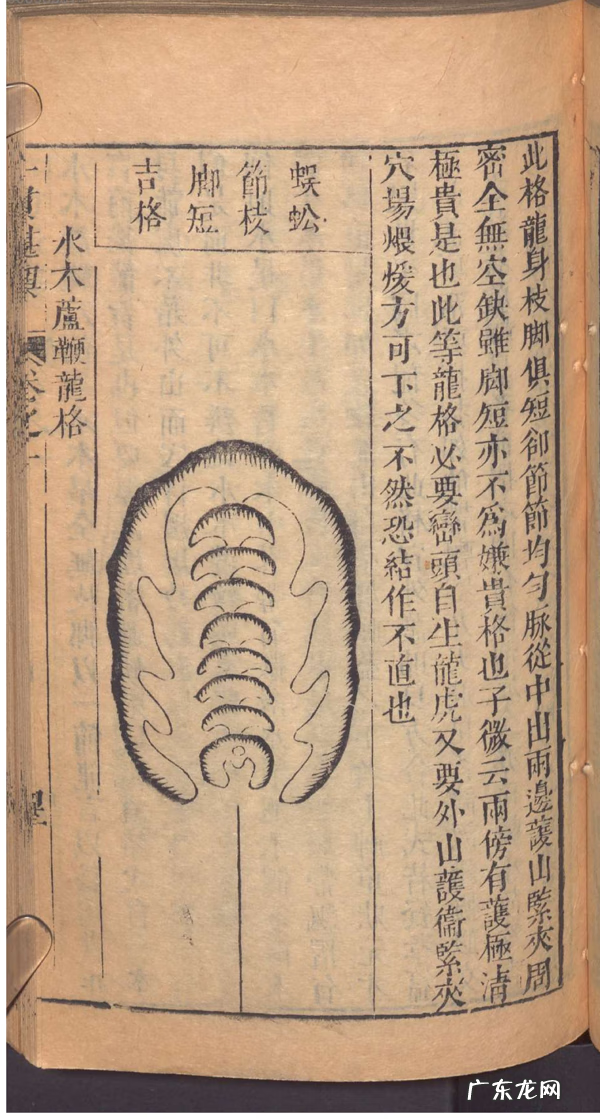 此格龍身枝脚俱短卻節節均勻脈從中出兩邊護山緊夾周
密全無空缺雖脚短亦不為嫌貴格也子微云兩傍有護極清
極貴是也此等龍格必要巒頭自生龍虎又要外山護衞緊夾
穴場煖煖方可下之不然恐結作不直也
蜈蚣
節枝
脚短
吉格
水木蘆鞭龍格
卷之
广东龙网